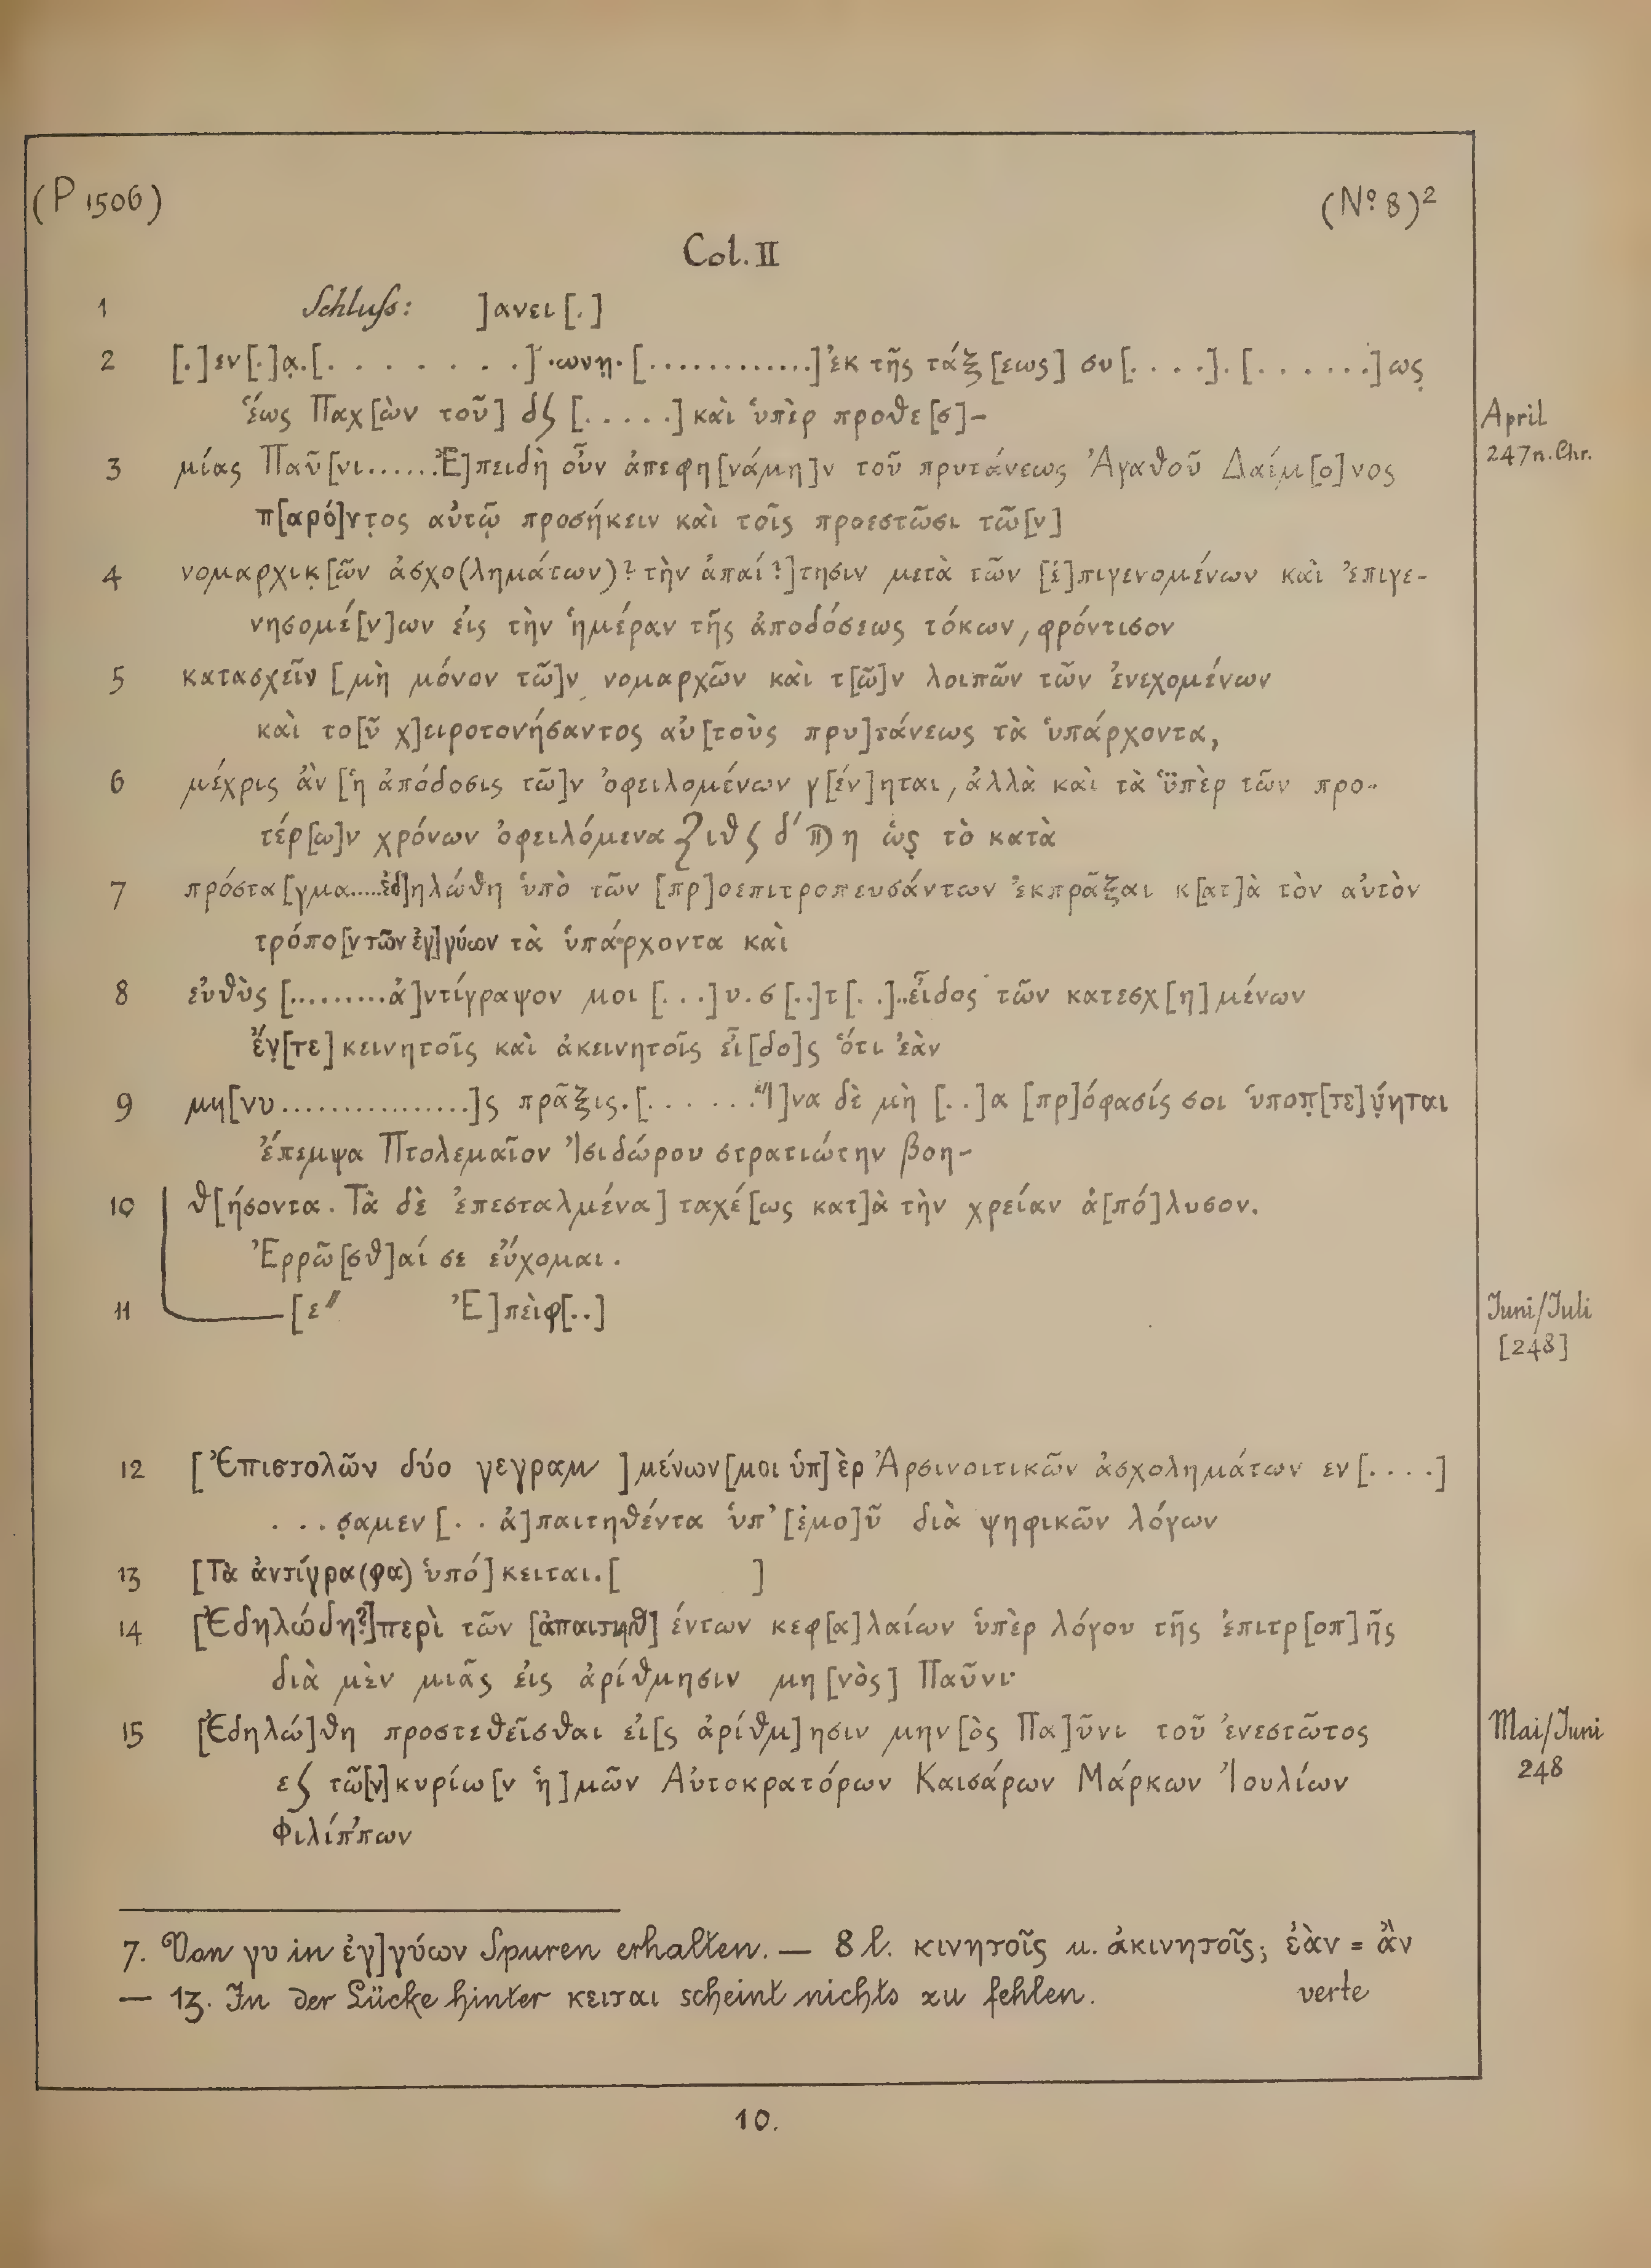 (P 1506) (Nº 8)²
Col. II
1 Schluſs: ]ανει[.]
2 [.]εν[.]α̣.[. . . . . . . .]·ωνη·[.............]ἐκ τῆς τάξ[εως] συ[. . . .]. [. . . . . .]ως̣
ἕως Παχ[ὼν τοῦ] δϛ [. . . . .] καὶ ὑπὲρ προθε[σ]-
April
247 n. Chr.
3 μίας Παῦ[νι......Ἐ]πειδὴ οὖν ἀπεφη[νάμη]ν τοῦ πρυτάνεως Ἀγαθοῦ Δαίμ[ο]νος
π[αρό]ντ̣ος αὐτῷ προσήκειν καὶ τοῖς προεστῶσι τῶ[ν]
4 νομαρχικ̣[ῶν ἀσχο(λημάτων)? τὴν ἀπαί?]τησιν μετὰ τῶν [ἐ]πιγενομένων καὶ ἐπιγε-
νησομέ[ν]ων εἰς τὴν ἡμέραν τῆς ἀποδόσεως τόκων, φρόντισον
5 κατασχεῖν [μὴ μόνον τῶ]ν νομαρχῶν καὶ τ[ῶ]ν λοιπῶν τῶν ἐνεχομένων
καὶ το[ῦ χ]ειροτονήσαντος αὐ[τοὺς πρυ]τάνεως τὰ ὑπάρχοντα,
6 μέχρις ἂν [ἡ ἀπόδοσις τῶ]ν ὀφειλομένων γ[έν]ηται, ἀλλὰ καὶ τὰ ὑ̈πὲρ τῶν προ-
τέρ[ω]ν χρόνων ὀφειλόμενα ιθϛ δ´ η ὡς̣ τὸ κατὰ
7 πρόστα[γμα.....ἐδ]ηλώθη ὑπὸ τῶν [πρ]οεπιτροπευσάντων ἐκπρᾶξαι κ[ατ]ὰ τὸν αὐτὸν
τρόπο[ν τῶν ἐγ]γύων τὰ ὑπάρχοντα καὶ
8 εὐθὺς [.........ἀ]ντίγραψον μοι [. . .]υ.σ[..]τ[. .]..εἶδος τῶν κατεσχ[η]μένων
ἔν̣[τε] κεινητοῖς καὶ ἀκεινητοῖς εἶ[δο]ς ὅτι ἐὰν
9 μη[νυ................]ς πρᾶξις.[. . . . . .Ἵ]να δὲ μὴ [. .]α [πρ]όφασίς σοι ὑποπ̣[τε]ύ̣ηται
ἔπεμψα Πτολεμαῖον Ἰσιδώρου στρατιώτην βοη-
10 θ[ήσοντα. Τὰ δὲ ἐπεσταλμένα] ταχέ[ως κατ]ὰ τὴν χρείαν ἀ[πό]λυσον.
Ἐρρῶ[σθ]αί σε εὔχομαι.
11 [ε″ Ἐ]πεὶφ[..]
Juni/Juli
[248]
12 [Ἐπιστολῶν δύο γεγραμ]μένων[μοι ὑπ]ὲρ Ἀρσινοιτικῶν ἀσχολημάτων εν[. . . .]
. . . σ̣αμεν[. . ἀ]παιτηθέντα ὑπ' [ἐμο]ῦ διὰ ψηφικῶν λόγων
13 [Τὰ ἀντίγρα(φα) ὑπό]κειται.[ ]
14 [Ἐδηλώδη?]περὶ τῶν [ἀπαιτηθ]έντων κεφ[α]λαίων ὑπὲρ λόγου τῆς ἐπιτρ[οπ]ῆς
διὰ μὲν μιᾶς εἰς ἀρίθμησιν μη[νὸς] Παῦνι·
15 [Ἐδηλώ]θη προστεθεῖσθαι εἰ[ς ἀρίθμ]ησιν μην[ὸς Πα]ῦνι τοῦ ἐνεστῶτος
εϛ τῶ[ν]κυρίω[ν ἡ]μῶν Αὐτοκρατόρων Καισάρων Μάρκων Ἰουλίων
Φιλίπ'πων
Mai/Juni
248
7. Von γυ in ἐγ]γύων Spuren erhalten. — 8 l. κινητοῖς u. ἀκινητοῖς; ἐὰν = ἂν
— 13. In der Lücke hinter κειται scheint nichts zu fehlen. verte
10.